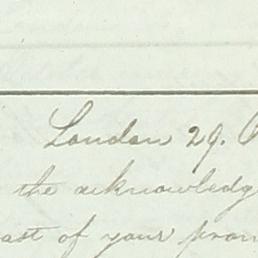 London 29.
the acknowledg
of your